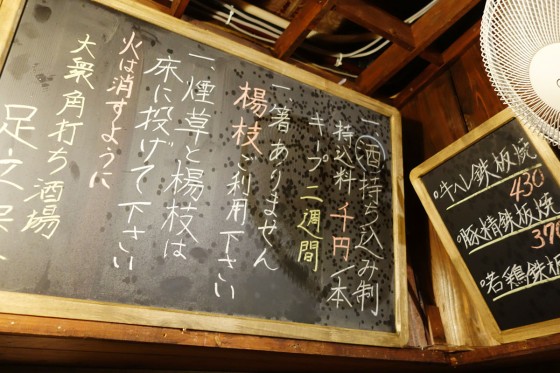 一、酒持ち込み制
持込料 千円/一本
キープ 二週間
一、箸ありません
楊枝ご利用下さい
一、煙草と楊枝は
床に投げて下さい
火は消すように
大衆角打ち酒場
牛ハレ鉄板焼
430
豚精鉄板焼
370
若鶏鉄板